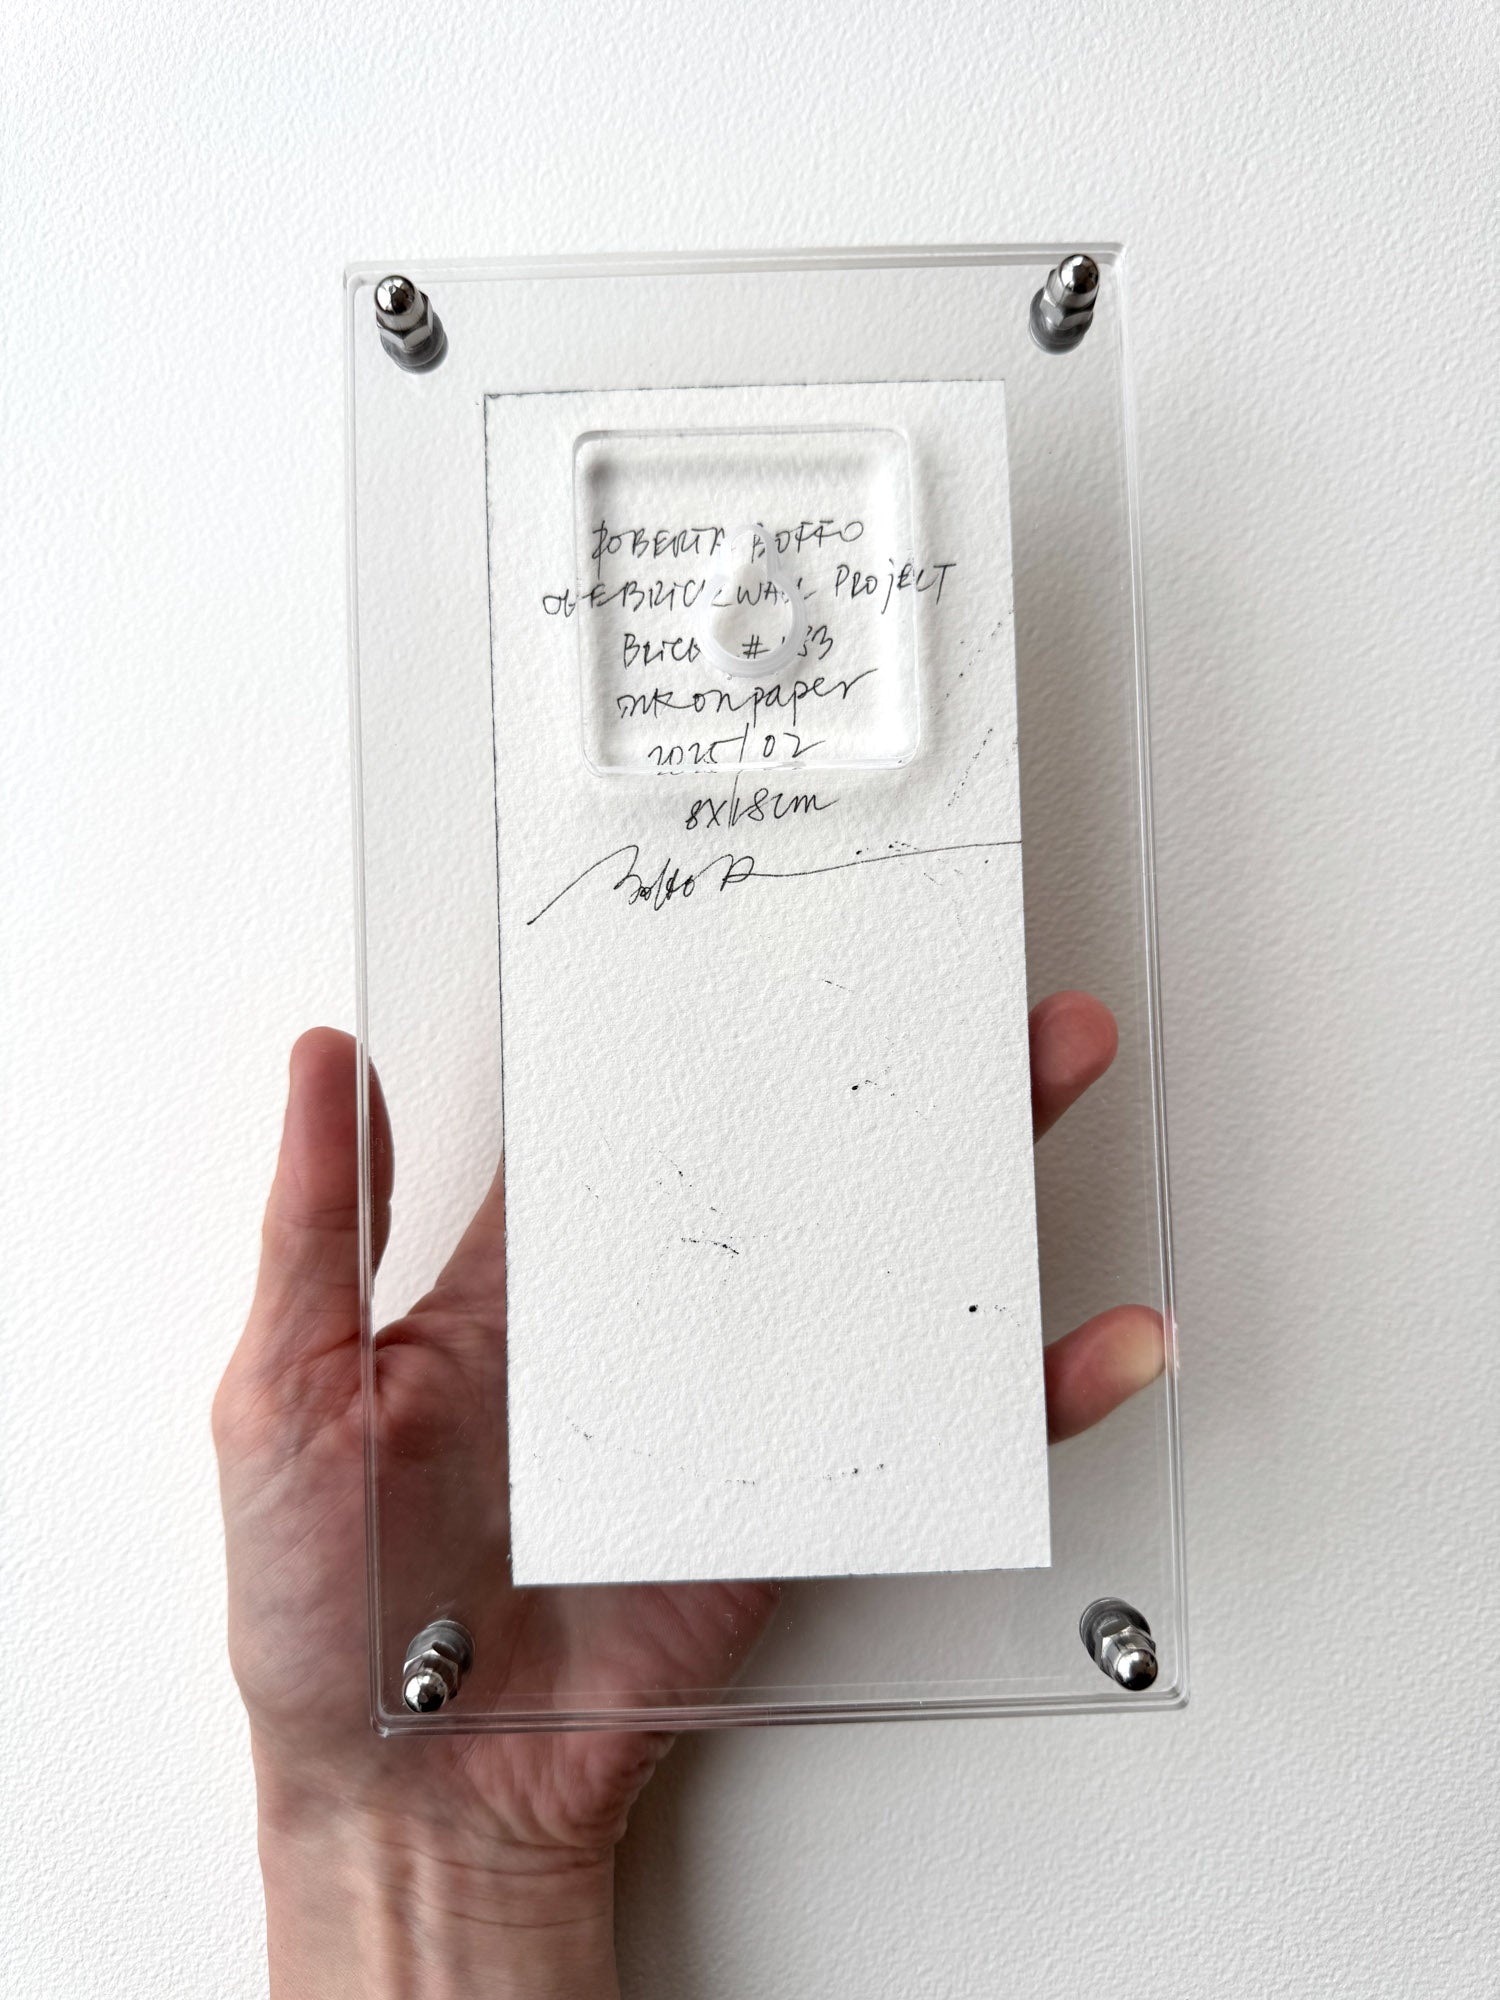 ROBERTA BOFFO
ONEBRICKWALL PROJECT
BRICK #
ink on paper
2025/02
8x18cm
Boffo R